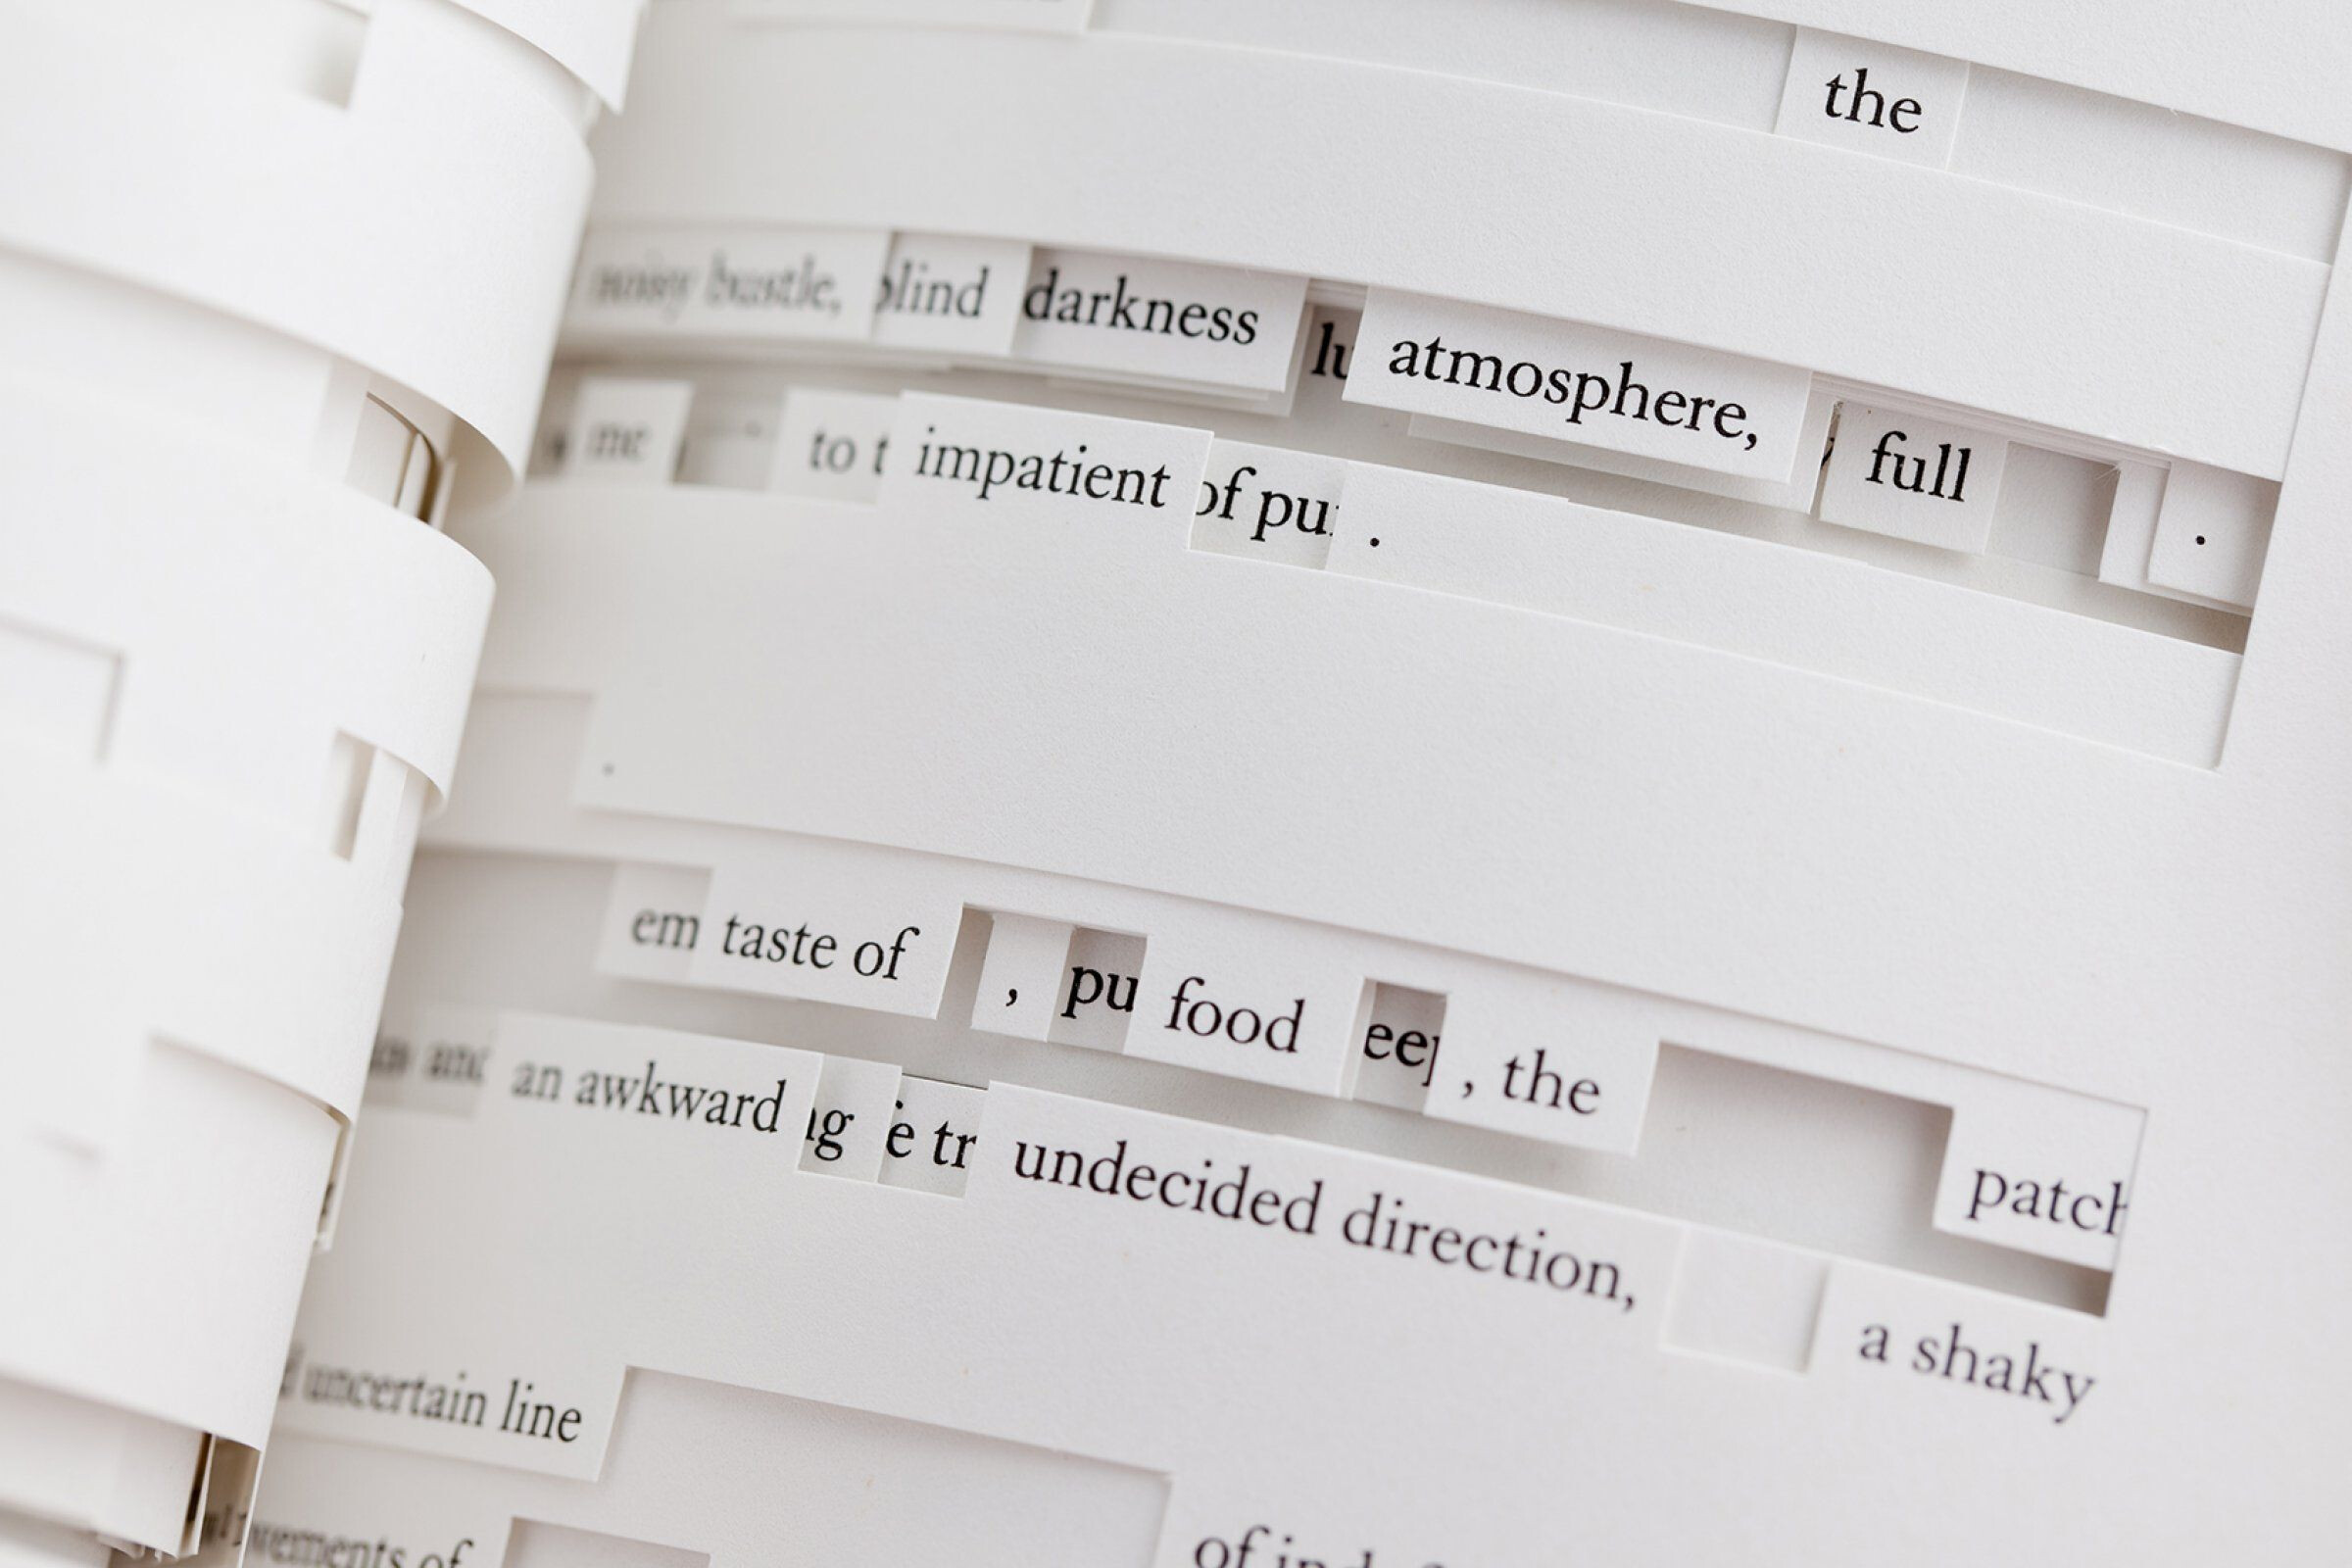 the
noisy bustle, blind darkness lu atmosphere, full .
me to t impatient of pu .
.
em taste of , pu food eep , the patch
and an awkward ng e tr undecided direction, a shaky
uncertain line
vements of of